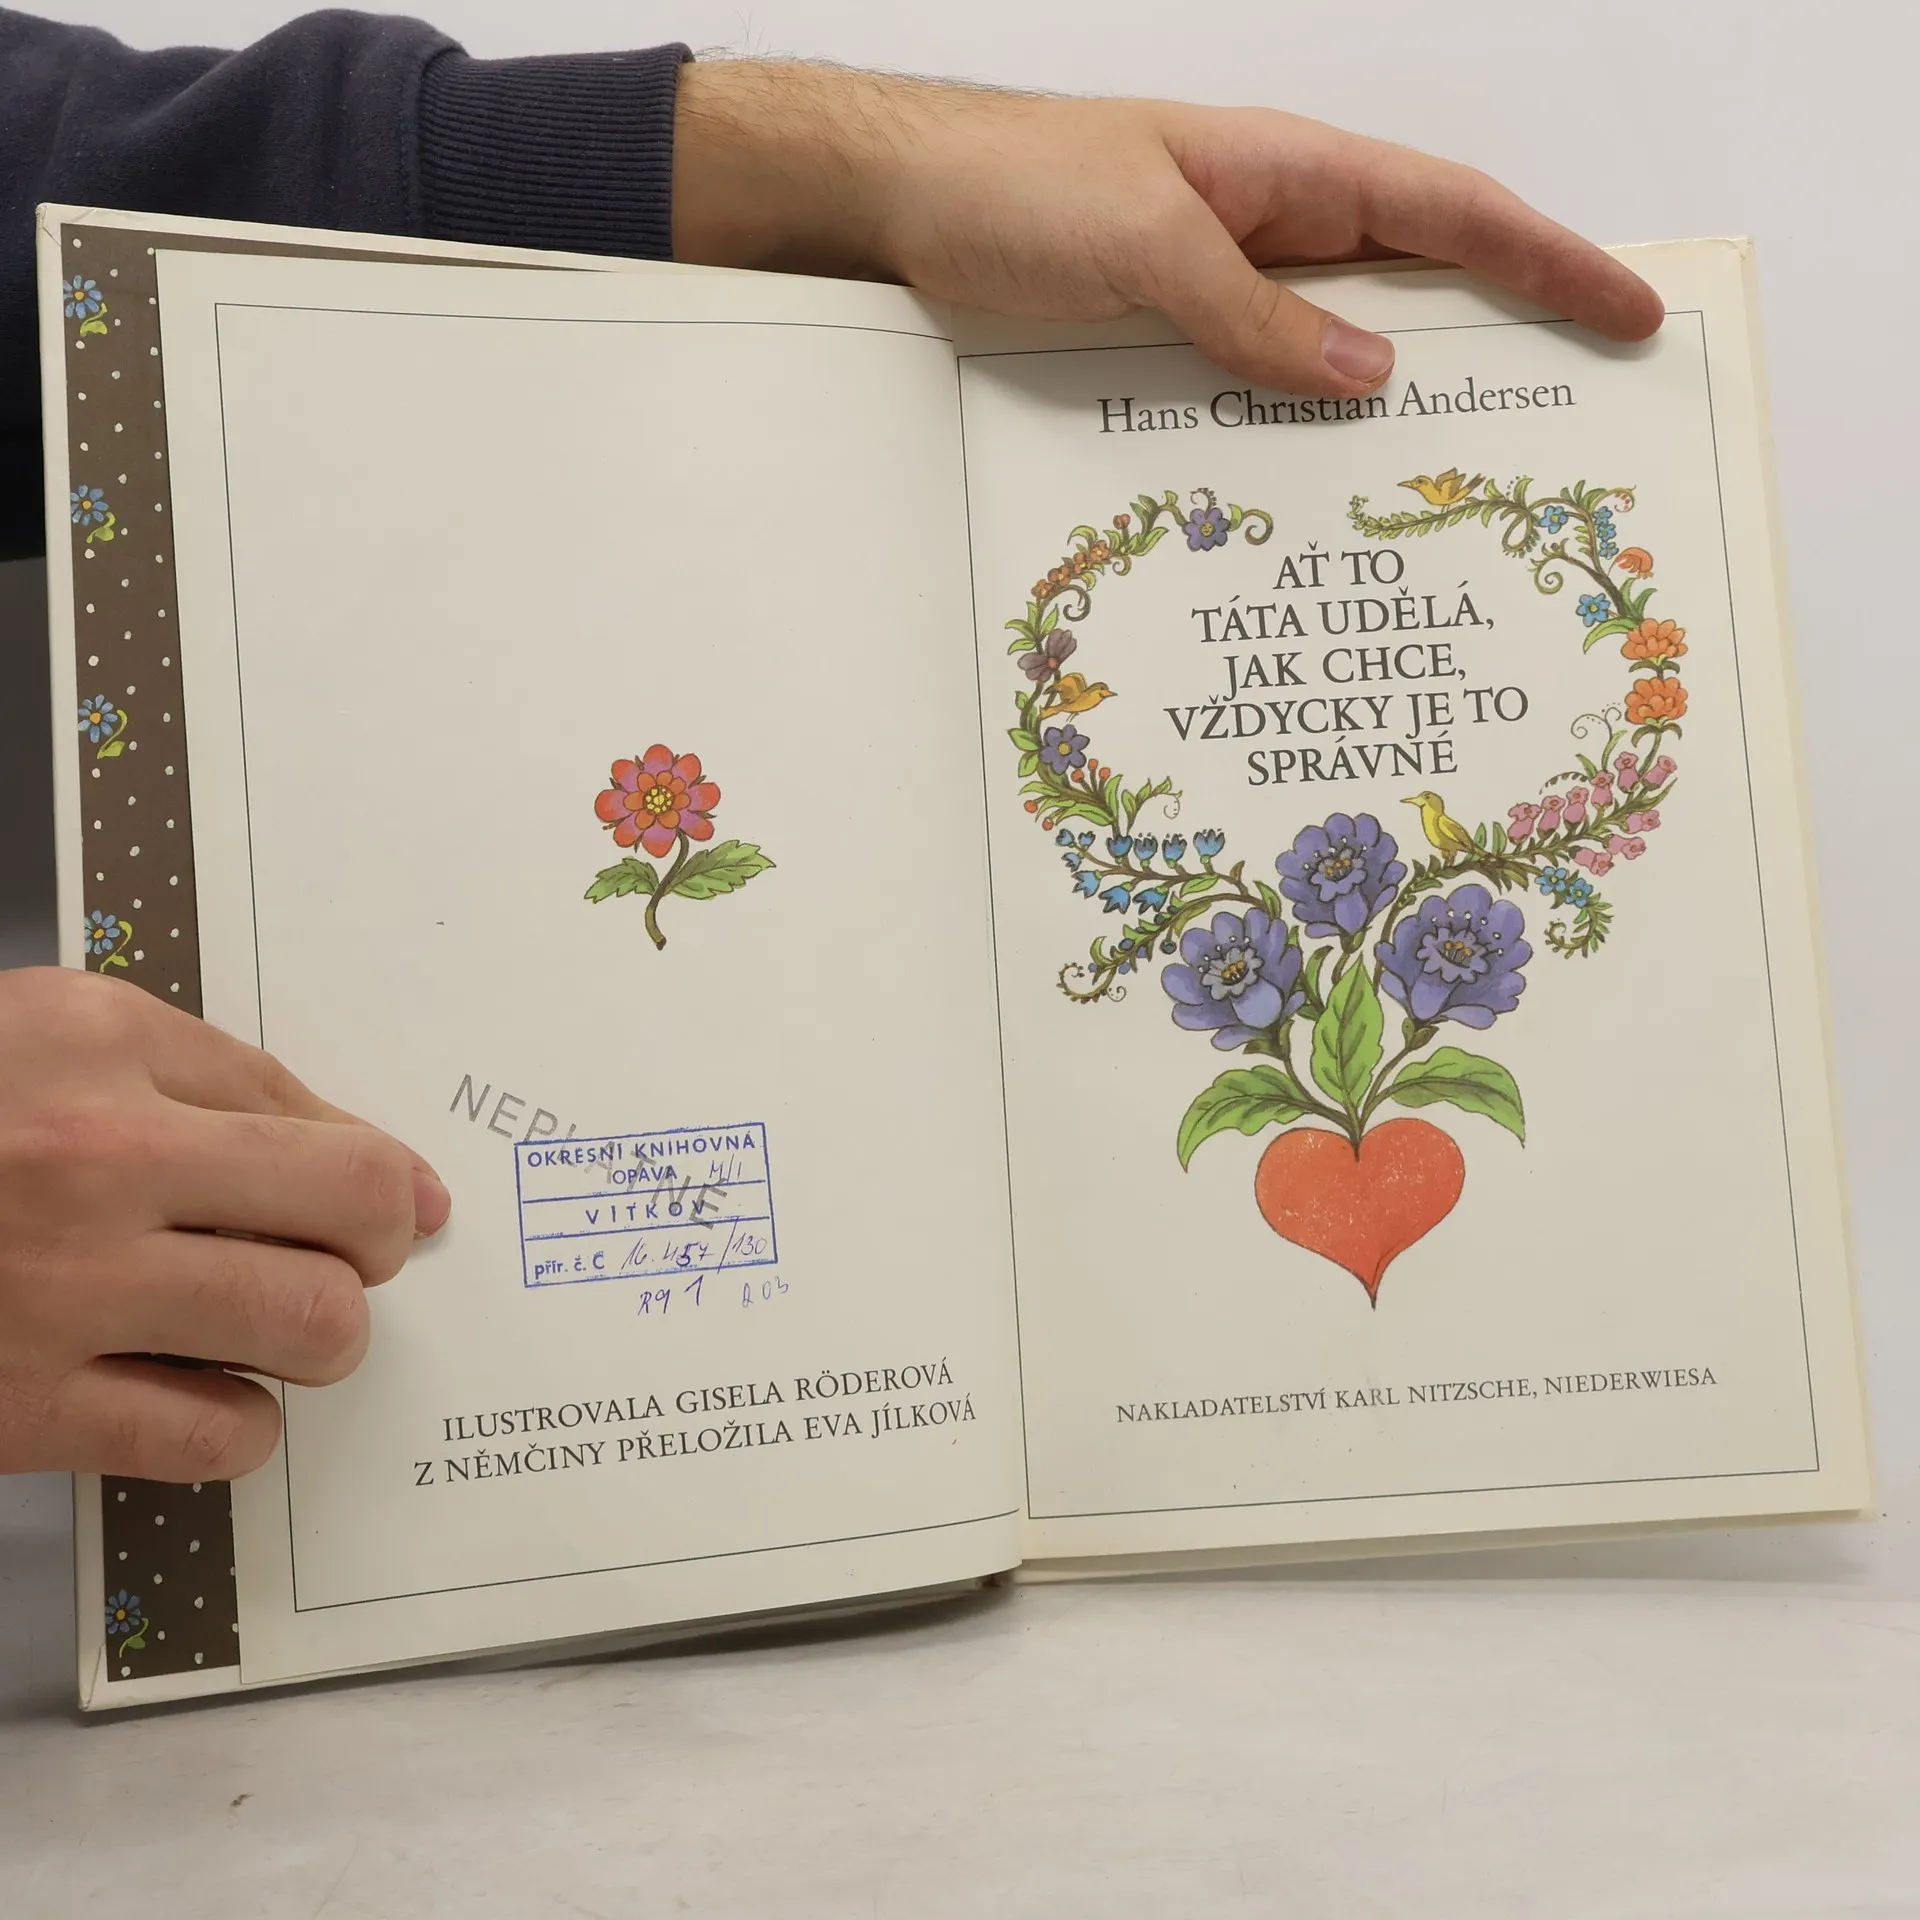 NEPLATNÉ
OKRESNÍ KNIHOVNA
OPAVA M/1
VÍTKOV
přír. č. C 16.457/130
1
ILUSTROVALA GISELA RÖDEROVÁ
Z NĚMČINY PŘELOŽILA EVA JÍLKOVÁ
Hans Christian Andersen
AŤ TO
TÁTA UDĚLÁ,
JAK CHCE,
VŽDYCKY JE TO
SPRÁVNÉ
NAKLADATELSTVÍ KARL NITZSCHE, NIEDERWIESA